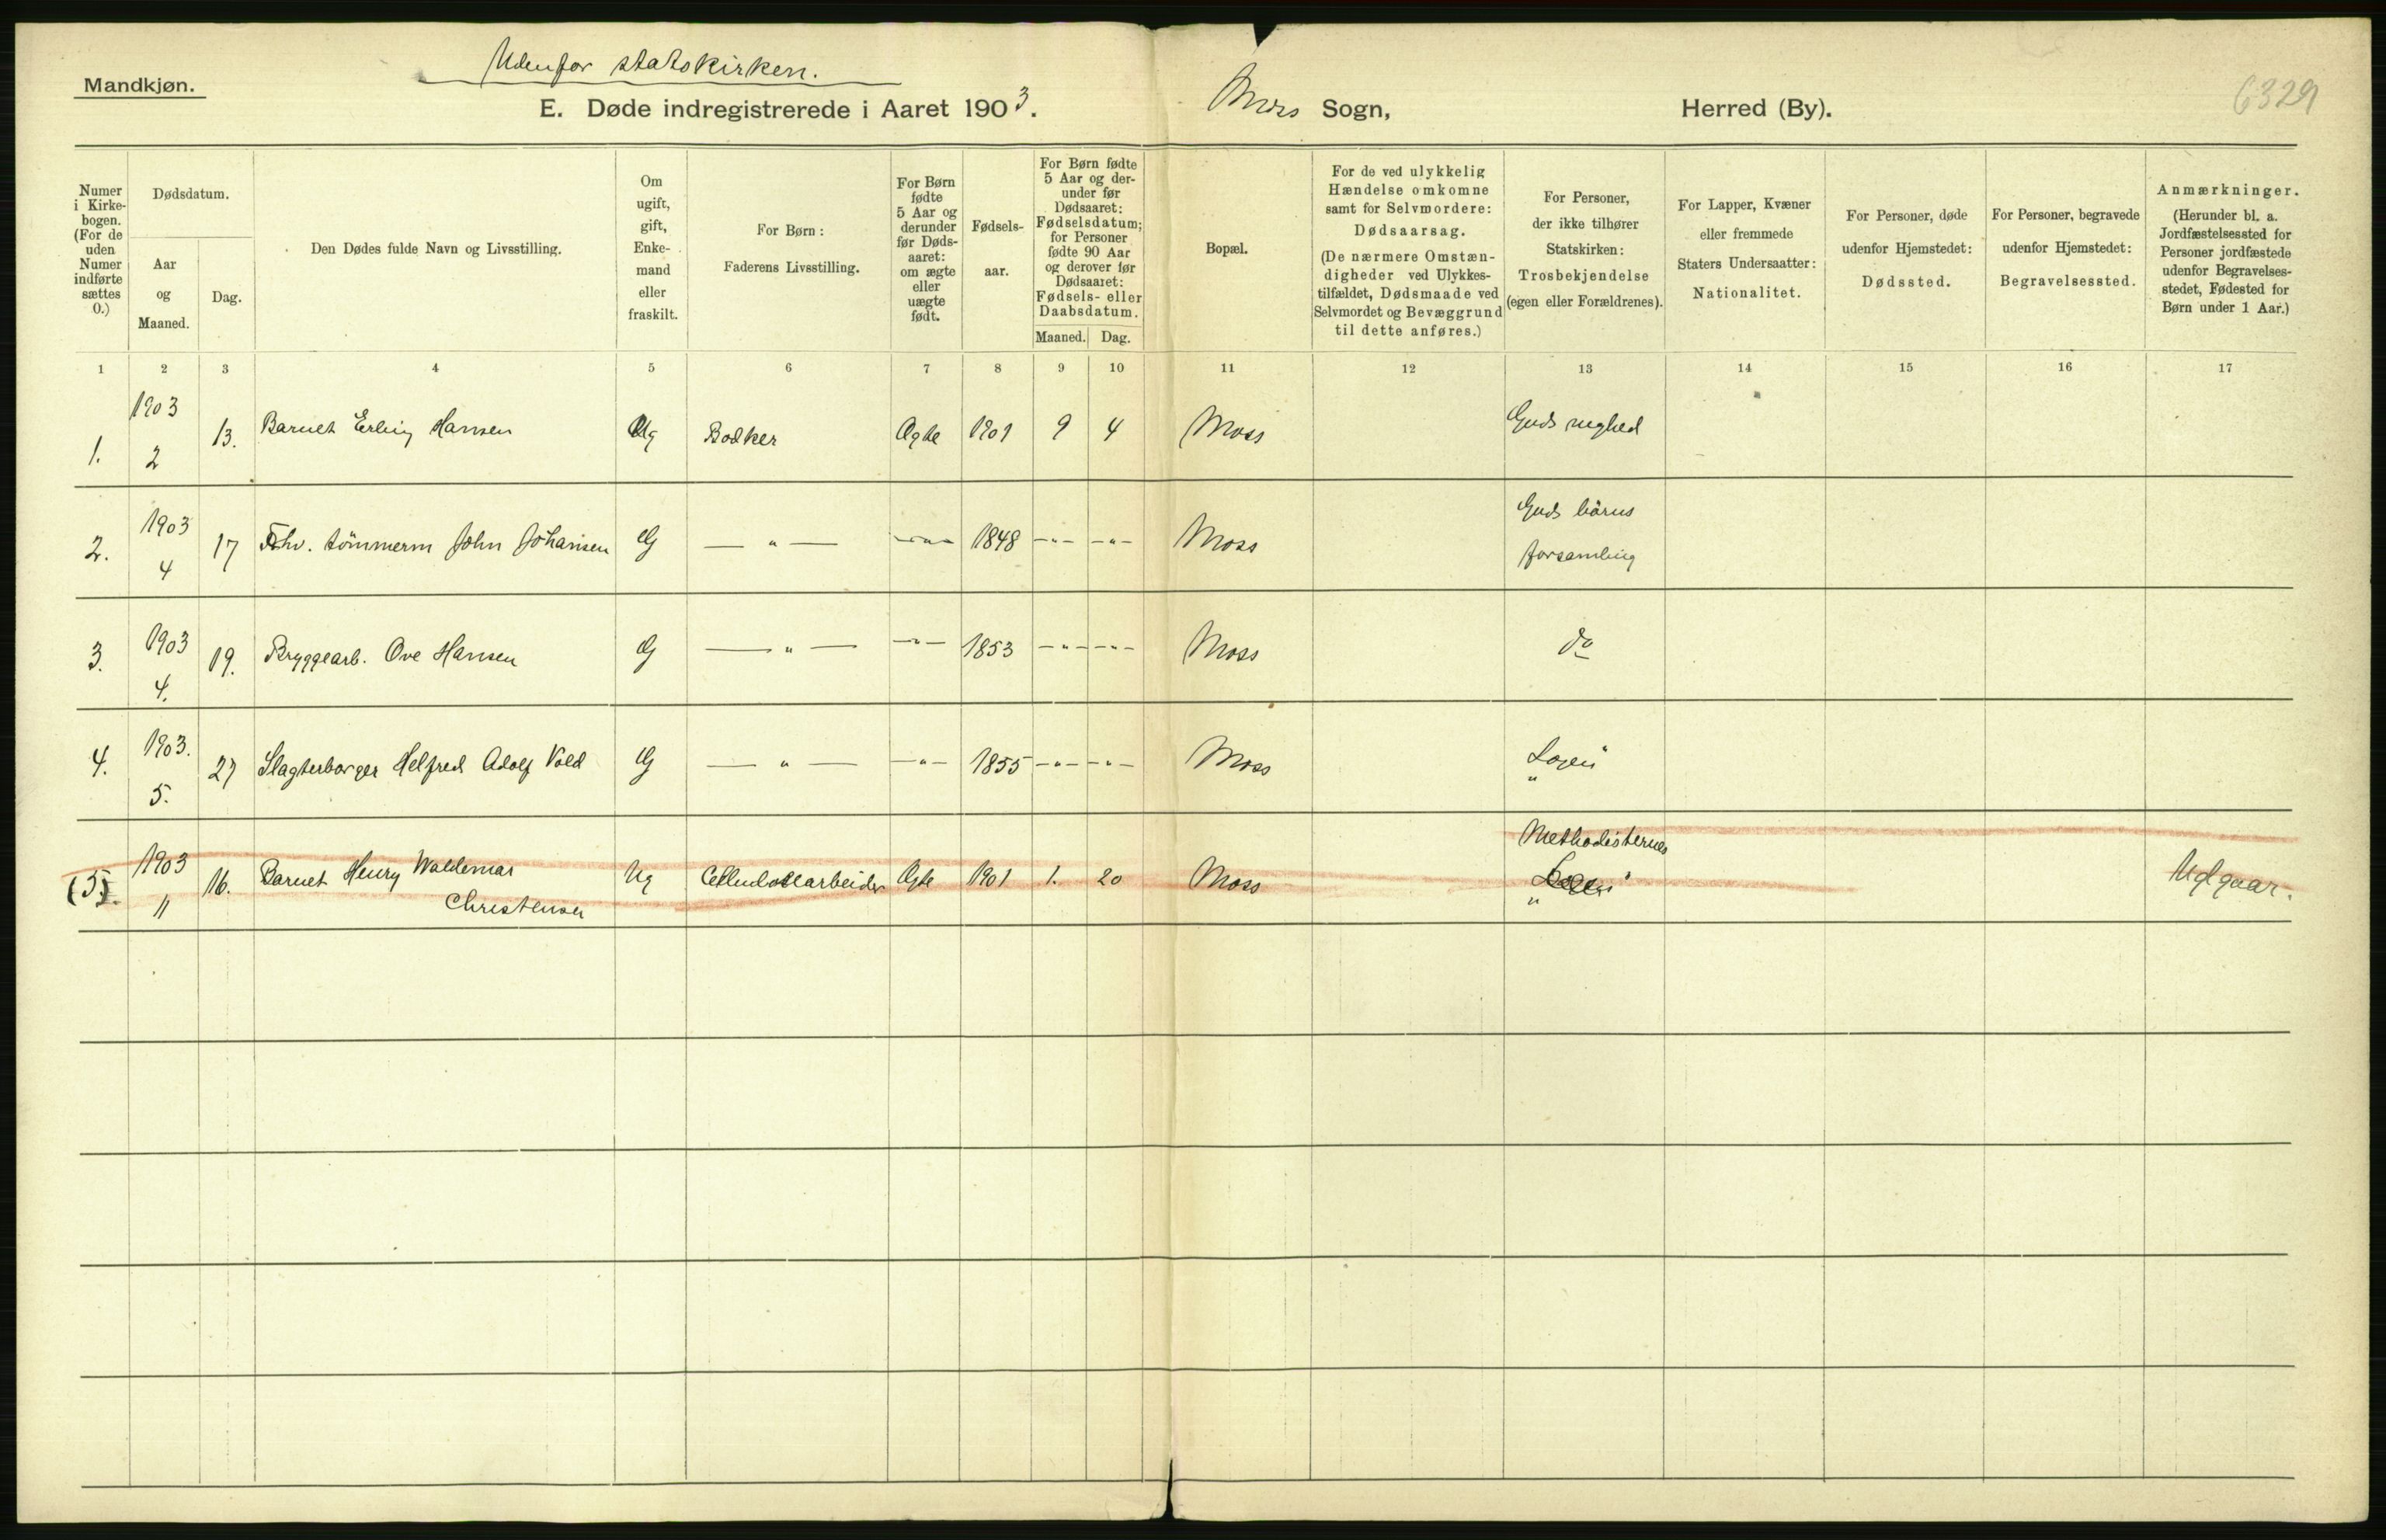 Mandkjøn.
Udenfor statskirken.
E. Døde indregistrerede i Aaret 1903.
Moss Sogn,
Herred (By).
6329
Numer
i Kirke-
bogen.
(For de
uden
Numer
indførte
sættes
0.)
Dødsdatum.
Aar
og
Maaned.
Dag.
Den Dødes fulde Navn og Livsstilling.
Om
ugift,
gift,
Enke-
mand
eller
fraskilt.
For Børn:
Faderens Livsstilling.
For Børn
fødte
5 Aar og
derunder
før Døds-
aaret:
om ægte
eller
uægte
født.
Fødsels-
aar.
For Børn fødte
5 Aar og der-
under før
Dødsaaret:
Fødselsdatum;
for Personer
fødte 90 Aar
og derover før
Dødsaaret:
Fødsels- eller
Daabsdatum.
Maaned. Dag.
Bopæl.
For de ved ulykkelig
Hændelse omkomne
samt for Selvmordere:
Dødsaarsag.
(De nærmere Omstæn-
digheder ved Ulykkes-
tilfældet, Dødsmaade ved
Selvmordet og Bevæggrund
til dette anføres.)
For Personer,
der ikke tilhører
Statskirken:
Trosbekjendelse
(egen eller Forældrenes).
For Lapper, Kvæner
eller fremmede
Staters Undersaatter:
Nationalitet.
For Personer, døde
udenfor Hjemstedet:
Dødssted.
For Personer, begravede
udenfor Hjemstedet:
Begravelsessted.
Anmærkninger.
(Herunder bl. a.
Jordfæstelsessted for
Personer jordfæstede
udenfor Begravelses-
stedet, Fødested for
Børn under 1 Aar.)
1 2 3 4 5 6 7 8 9 10 11 12 13 14 15 16 17
1. 1903 2 13. Barnet Erling Hansen Ug Bödker Ægte 1901 9 4 Moss Guds
2. 1903 4 17 Fhv. tömmerm John Johansen G — " — — " — 1848 — " — — " — Moss Guds börns
forsamling
3. 1903 4. 19. Bryggearb. Ove Hansen G — " — — " — 1853 — " — — " — Moss do
4. 1903. 5. 27 Slagterborger Helfred Adolf Vold G — " — — " — 1855 — " — — " — Moss
Methodisternes
(5). 1903 11 16. Barnet Henry Waldemar Ug Ægte 1901 1. 20 Moss Udgaar.
Christensen